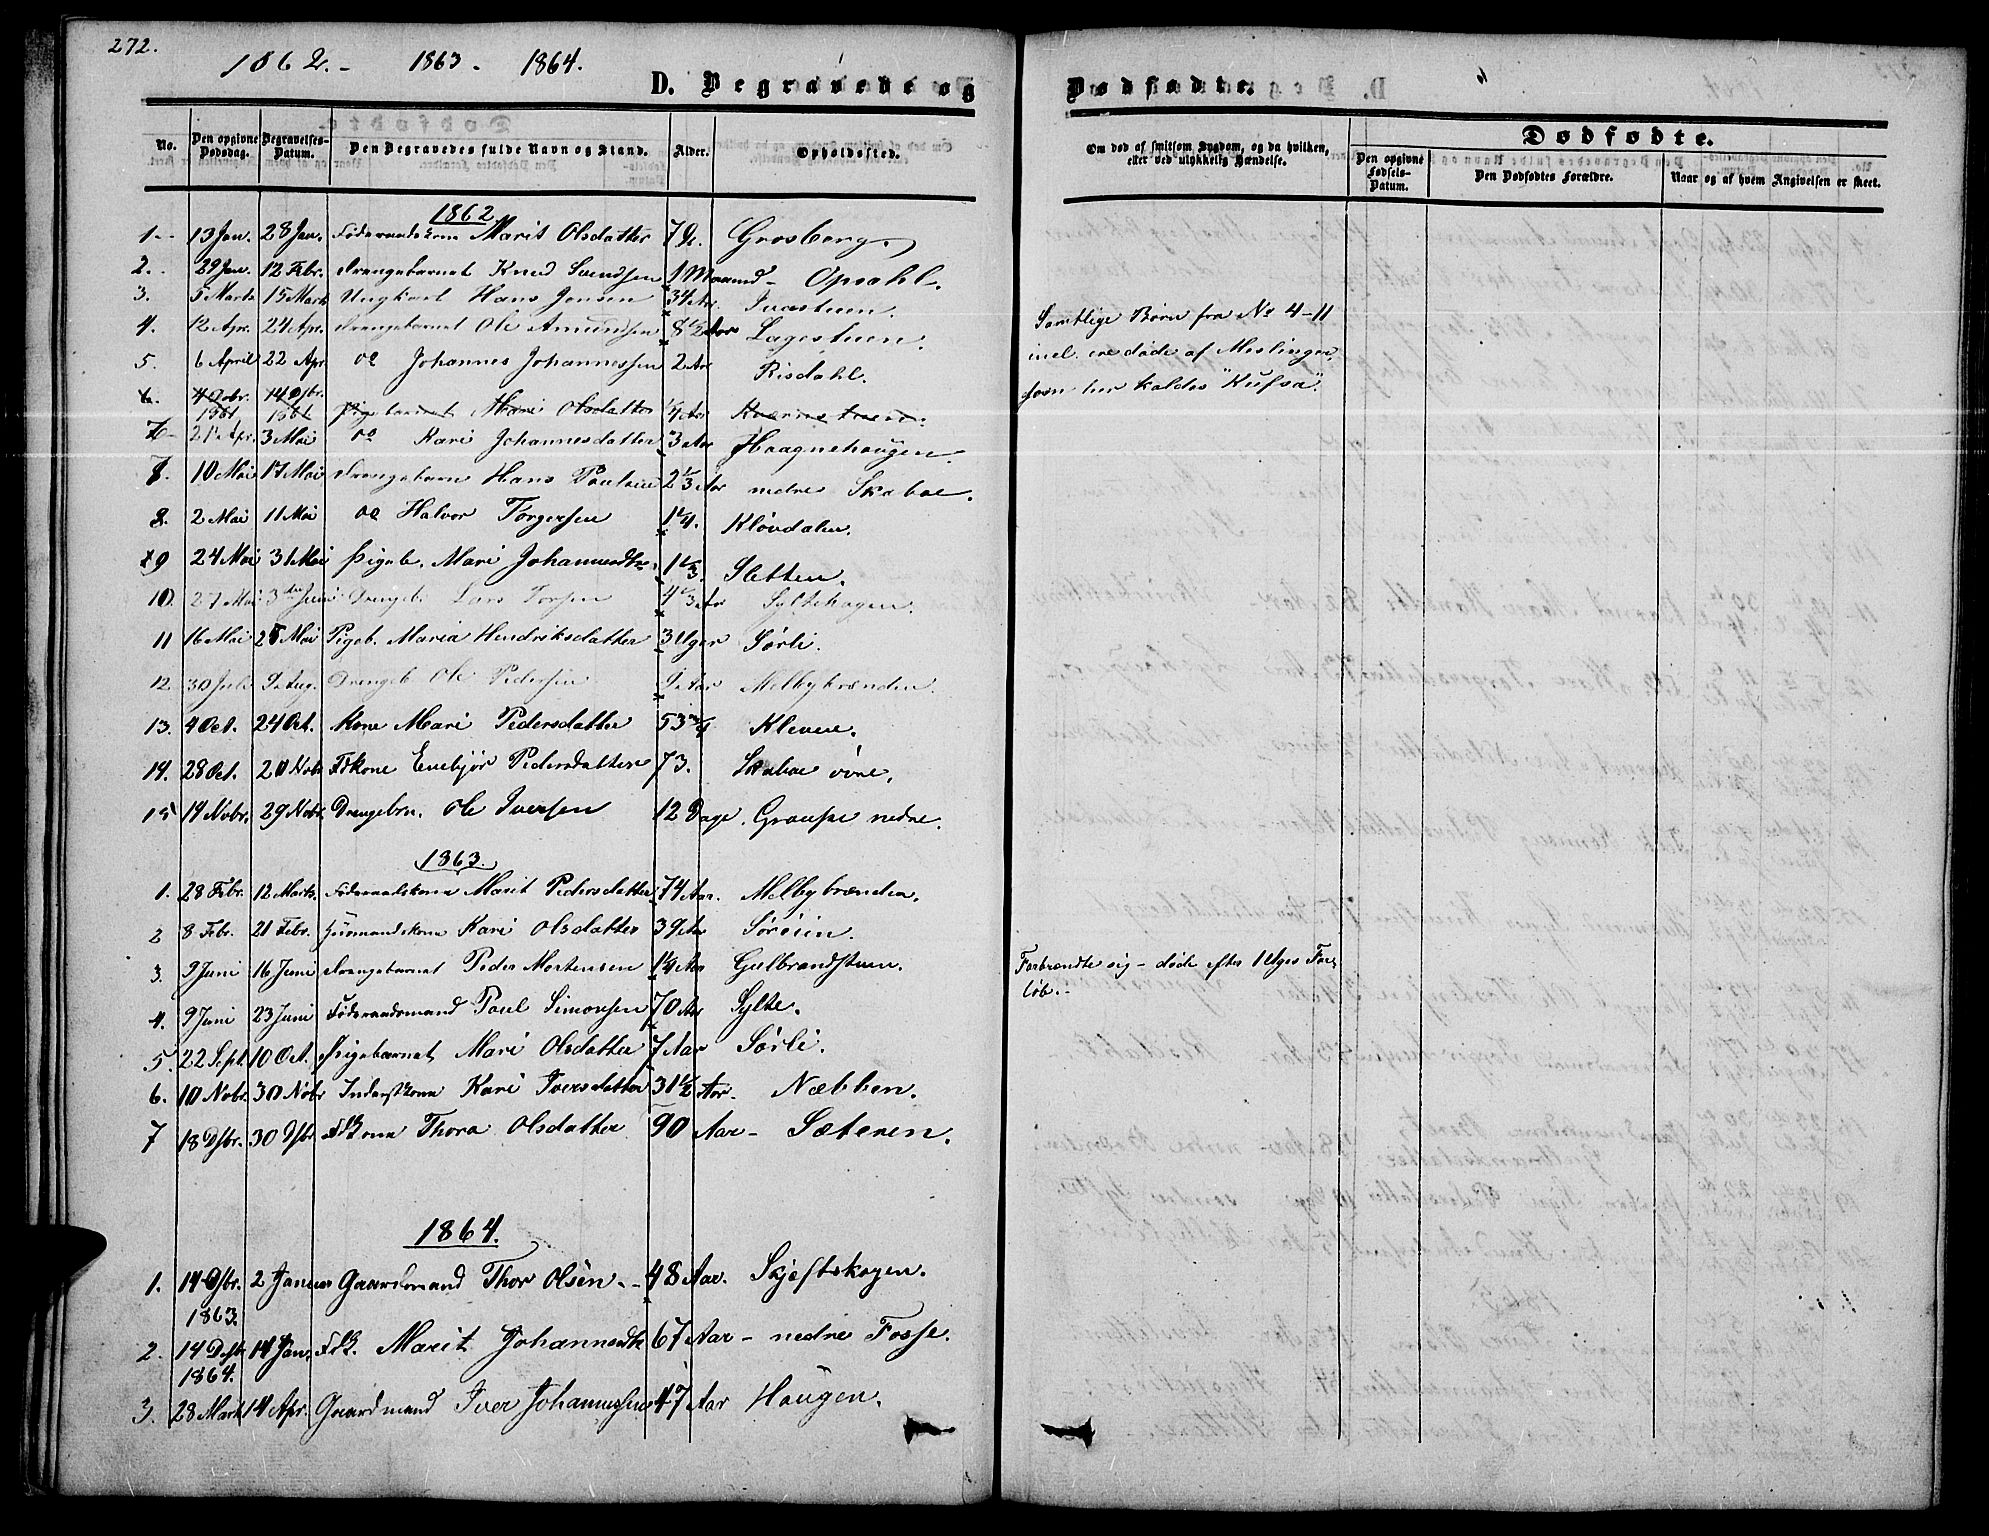 272.
1862.- 1863- 1864.
D. Begravede og
Dødfødte.
No. Den opgivne Dødsdag. Begravelses-Datum. Den Begravedes fulde Navn og Stand. Alder. Opholdssted.
Om død af smitsom Sygdom, og da hvilken, eller ved ulykkelig Hændelse.
Dødfødte.
Den opgivne Fødsels-Datum. Den Dødfødtes Forældre. Naar og af hvem Angivelsen er skeet.
1862
1 13 Jan. 28 Jan. Føderaadskone Marit Olsdatter Grosberg.
2. 29 Jan. 12 Febr. Drengebarnet Knud Svendsen 1 Maaned - Opsahl.
3. 5 Marts 15 Marts Ungkarl Hans Jensen 34 Aar
4. 12 Apr. 24 Apr. Drengebarnet Ole Amundsen 8 1/2 Aar Lagestuen.
5. 6 April 22 Apr. do Johannes Johannessen 2 Aar Risdahl.
6. 4 Octbr. 1861 14 Dsbr. 1861 Pigebarnet Mari Olsdatter 1/4 Aar Kværnstuen.
7 21 Apr. 3 Mai do Kari Johannesdatter 3 Aar Haagnehaugen.
10 Mai 17 Mai Drengebarn Hans Poulsen 2 1/3 Aar nedre Skaboe.
8. 2 Mai 11 Mai do Halvor Torgersen 1 1/4. Kløvdalen.
9 24 Mai 31 Mai Pigeb. Mari Johannesdtr. 1 1/3. Sletten.
10. 27 Mai 3die Juni Drengeb. Lars Torsen 4 1/3 Aar Syltehagen.
11 16 Mai 25 Mai Pigeb. Maria Hendriksdatter 3 Uger Sørli.
12 30 Juli Aug. Drengeb Ole Pedersen Aar Melbybrænden.
13. 4 Oct. 24 Oct. Kone Mari Pedersdatter 53 3/4 Klevene.
14. 28 Oct. 20 Nobr Fdkone Enebjør Pedersdatter 73. Skaboe øvre.
15 14 Nvbr. 29 Nvbr. Drengebrn. Ole Iversen 12 Dage. Graupe nedre.
Samtlige Børn fra No 4-11
incl. ere døde af Meslinger,
som her kaldes "Kufsa".
1863.
1. 28 Febr. 12 Marts. Føderaadskone Marit Pedersdatter 74 Aar. Melbybrænden.
2 8 Febr. 21 Febr. Huusmandskone Kari Olsdatter 39 Aar Sørøien.
3. 9 Juni 16 Juni Drengebarnet Peder Mortensen 1 1/4 Aar Gulbrandstuen.
Forbrændte sig - døde efter 1 Uges For-
løb.-
4. 9 Juni 23 Juni Føderaadsmand Poul Simonsen 70 Aar Sylte.
5. 22 Sept. 10 Oct. Pigebarnet Mari Olsdatter 7 Aar Sørli.
6. 10 Nobr. 30 Nobr Inderstkone Kari Iversdatter 31 1/2 Aar. Næbben.
7 18 Dsbr. 30 Dsbr Fdkone Thora Olsdatter 90 Aar - Sæteren.
1864.
1. 14 Dsbr. 1863. 2 Januar Gaardmand Thor Olsen. - 48 Aar. Skjeftskogen.
2. 14 Dsbr 14 Jan. Fdk. Marit Johannesdtr 67 Aar - nedre Fosse.
1864.
3. 28 Marts 14 Apr. Gaardmand Iver Johannessen 47 Aar Haugen.